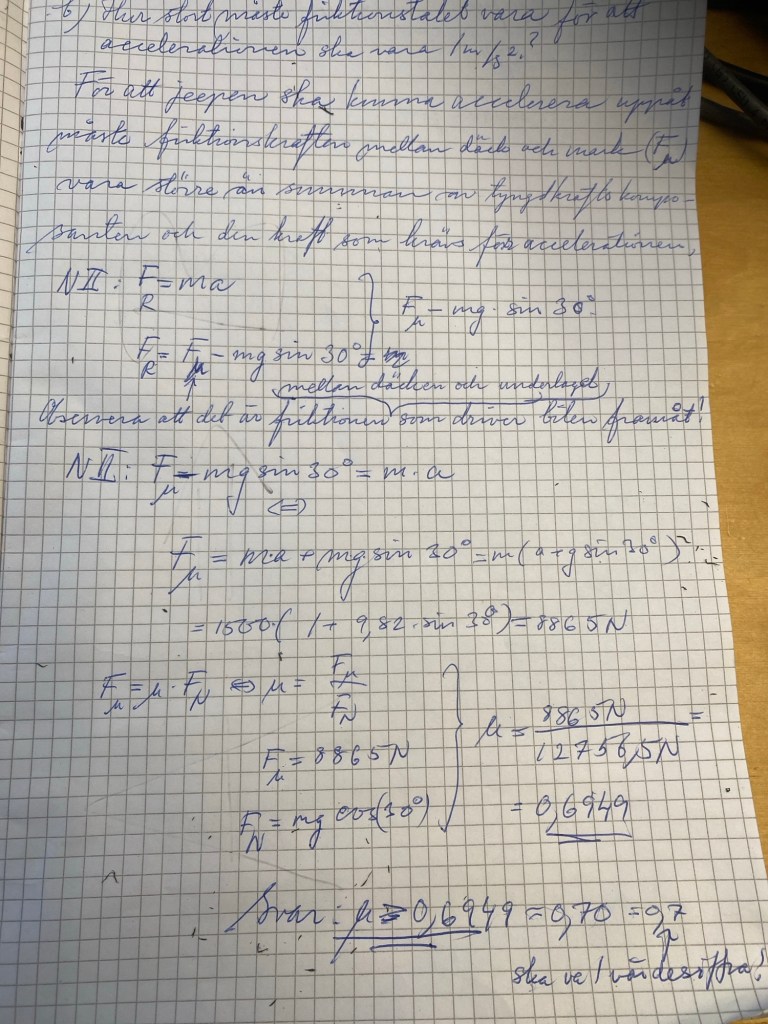 b) Hur stort måste friktionstalet vara för att
accelerationen ska vara 1 m/s².?
För att jeepen ska kunna accelerera uppåt
måste friktionskraften mellan däck och mark (Fμ)
vara större än summan av tyngdkrafts kompo-
santen och den kraft som krävs för accelerationen,
NII: F_R = ma
Fμ - mg · sin 30°
F_R = Fμ - mg sin 30° =
mellan däcken och underlaget
Observera att det är friktionen som driver bilen framåt!
NII: Fμ - mg sin 30° = m · a
⇔
Fμ = m·a + mg sin 30° = m(a + g sin 30°)
= 1500·(1 + 9,82 · sin 30°) = 8865N
Fμ = μ · F_N ⇔ μ = Fμ / F_N
Fμ = 8865N
F_N = mg cos(30°)
μ = 8865N / 12756,5N =
= 0,6949
Svar: μ > 0,6949 = 0,70 = 0,7
ska va 1 värdesiffra!